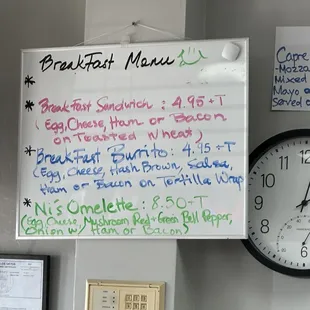 BreakFast Menu
*
* Breakfast Sandwich : 4.95 + T
( Egg, Cheese, Ham or Bacon
on Toasted Wheat )
* Breakfast Burrito : 4.95 + T
( Egg, Cheese, Hash Brown, Salsa,
Ham or Bacon on Tortilla Wrap
* Ni's Omelette : 8.50 + T
(Egg Cheese, Mushroom Red + Green Bell Pepper,
Onion w/ Ham or Bacon)
Capre
-Mozza
Mixed
Mayo o
Served o
12
11
10
9
8
7
6